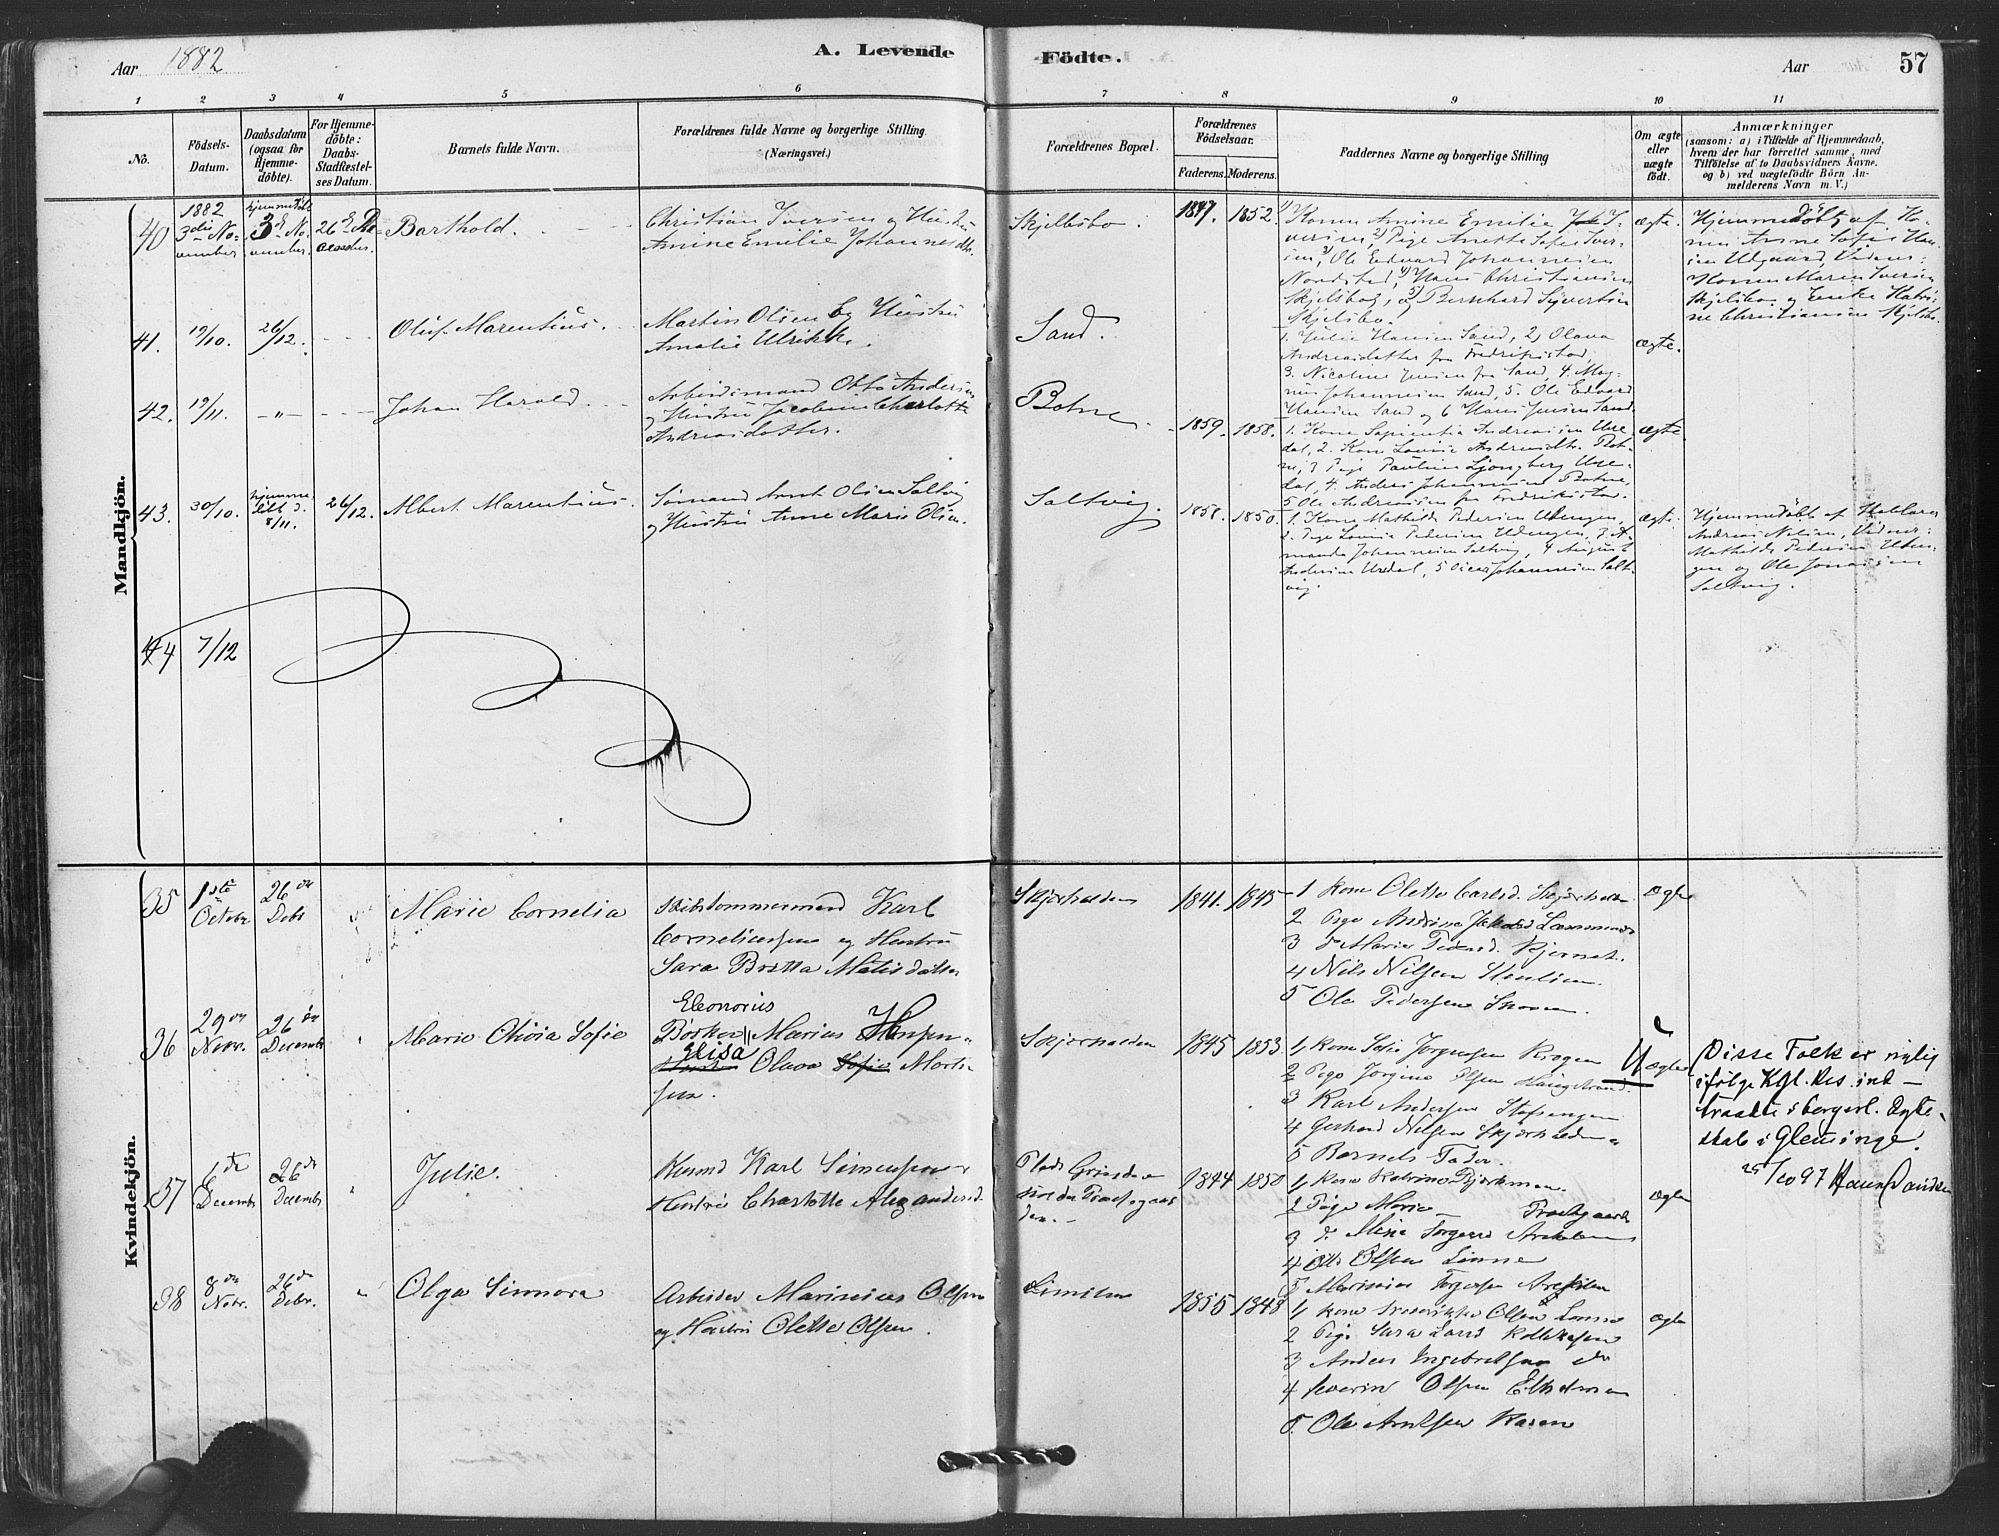 Aar 1882
A. Levende
Födte.
Aar
57
1 2 3 4 5 6 7 8 9 10 11
No.
Födsels-
Datum.
Daabsdatum
(ogsaa for
Hjemme-
döbte).
For Hjemme-
döbte:
Daabs-
Stadfæstel-
ses Datum.
Barnets fulde Navn.
Forældrenes fulde Navne og borgerlige Stilling.
(Næringsvei.)
Forældrenes Bopæl.
Forældrenes
Födselsaar.
Faderens. Moderens.
Faddernes Navne og borgerlige Stilling
Om ægte
eller
uægte
födt.
Anmærkninger
(saasom: a) i Tilfælde af Hjemmedaab,
hvem der har forrettet samme, med
Tilföielse af to Daabsvidners Navne.
og b) ved uægtefödte Börn An-
melderens Navn m. V.)
Mandkjön.
40
1882
3die No-
vember
hjemmedöbt
3 No-
vember
26 De-
cember
Barthold.
Christian Iversen og Hustru
Amine Emilie Johannesdtr.
Skjelsbo.
1847. 1852.
1) Konen Amine Emilie I-
versen, 2) Pige Anette Sofie Iver-
sen, 3) Ole Edvard Johannesen
Nordstad, 4) Hans Christiansen
Skjelsbo, 5) Bernhard Syvertsen
Skjelsbo.
ægte.
Hjemmedöbt af Ko-
nen Anne Sofie Han-
sen Udgaard, Vidner:
Konen Maren Iversen
Skjelsbo og Enke Katri-
ne Christiansen Skjelsbo.
41.
19/10.
26/12.
Oluf Marentius.
Martin Olsen og Hustru
Amalie Ulrikke.
Sand.
1. Julie Hansen Sand, 2, Olava
Andreasdatter fra Fredrikstad,
3. Nicoline Jensen fra Sand, 4. Mag-
nus Johannesen Sand, 5. Ole Edvard
Hansen Sand og 6 Hans Jensen Sand.
ægte.
42.
19/11.
-"-
Johan Harald.
Arbeidsmand Otto Andersen
og Hustru Jacobine Charlotte
Andreasdatter.
Botne
1859. 1858.
1. Kone Sapientia Andreasen Ure-
dal, 2. Kone Lovise Andreasdtr. Bot-
ne, 3 Pige Pauline Ljongberg Ure-
dal, 4. Andreas Johannesen Botne,
5 Ole Andreassen fra Fredrikstad.
ægte.
43.
30/10.
hjemme-
döbt d.
8/11.
26/12.
Albert Marentius.
Sömand Arnt Olsen Saltvig
og Hustru Anne Marie Olsen.
Saltvig.
1851. 1850.
1. Kone Mathilde Pedersen Udengen,
2. Pige Lovise Pedersen Udengen, 3 A-
manda Johannesen Saltvig, 4 August
Andersen Uredal, 5 Johannesen Salt-
vig.
ægte.
Hjemmedöbt af
Andreas Nilsen, Vidner:
Mathilde Pedersen Uden-
gen og Ole Jonassen
Saltvig.
44
7/12
Kvindekjön.
35
1ste
Octobr
26de
Decbr
"
Marie Cornelia
Skibstømmermand Karl
Corneliussen og Hustru
Sara Britta Matisdatter
Skjærhalden
1841. 1845
1 Kone Olette Carlsd. Skjærhalden
2 Pige Andrine Jakobsd
3 d Marie Pedersd. Kjernet.
4 Nils Nilsen Stenlien.
5 Ole Pedersen
Ægte
36
29de
Novr.
26de
Decembr
"
Marie Olivia Sofie
Eleonorius
Marius Hansen
Elisa
Olava Sofie Mort-
sen.
Skjærhalden
1845 1853
1, Kone Sofie Jørgensen Krogen
2 Pige Jorgine Olsen
3 Karl Andersen Stafsengen
4 Gerhard Nilsen Skjærhalden
5 Barnets Fader.
U
Ægte
Disse Folk er nylig
ifølge Kgl. Res. ind-
traadte i borgerl. Ægte-
skab i Glemminge.
25/10 97
37
1de
Decembr
26de
Decembr
"
Julie.
Karl Simensen
Hustru Charlotte Alexandersd.
Plads
1844 1850
1, Kone Katrine Bjørkman.
2 Pige Marie
3 d.
4 Otto Olsen
5 Marinius Torgersen
Ægte
38
8de
Nobr.
26de
Debr.
"
Olga Sinnora
Arbeider Marinius Olsen
og Hustru Olette Olsen.
1855 1848
1, Kone Fredrikke Olsen
2 Pige Sara
3 Anders Ingebretsen do
4 Severin Olsen
5. Ole Arntsen Kasen
Ægte